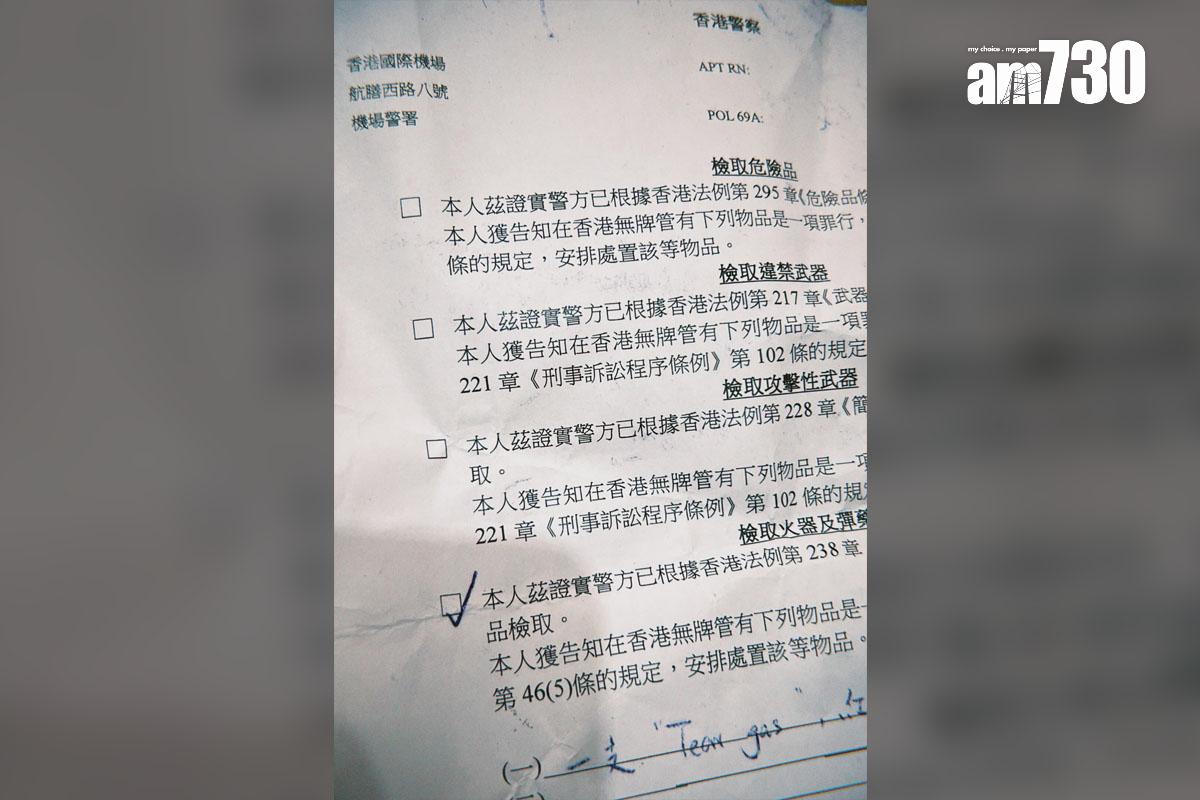 香港警察
my choice . my paper
am730
香港國際機場
航膳西路八號
機場警署
APT RN:
POL 69A:
檢取危險品
本人茲證實警方已根據香港法例第 295 章《危險品條
本人獲告知在香港無牌管有下列物品是一項罪行，
條的規定，安排處置該等物品。
檢取違禁武器
本人茲證實警方已根據香港法例第 217 章《武器
本人獲告知在香港無牌管有下列物品是一項罪
221 章《刑事訴訟程序條例》第 102 條的規定
檢取攻擊性武器
本人茲證實警方已根據香港法例第 228 章《簡
取。
本人獲告知在香港無牌管有下列物品是一項
221 章《刑事訴訟程序條例》第 102 條的規定
檢取火器及彈藥
本人茲證實警方已根據香港法例第 238 章
品檢取。
本人獲告知在香港無牌管有下列物品是一
第 46(5)條的規定，安排處置該等物品。
(一) 一支 "Tear gas", 紅